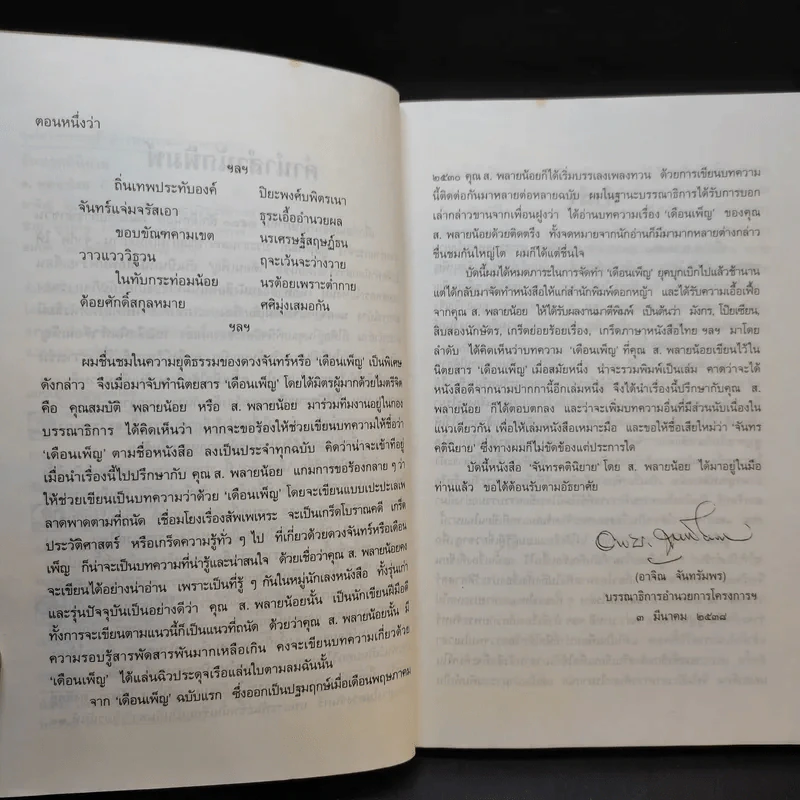 ตอนหนึ่งว่า
ฯลฯ
ถิ่นเทพประทับองค์ ปิยะพงศ์บพิตรเนา
จันทร์แจ่มจรัสเอา ธุระเอื้ออำนวยผล
ขอบขัณฑคามเขต นรเศรษฐ์สฤษฎ์ธน
วาวแวววิฐูวน ฤจะเว้นจะว่างวาย
ในทับกระท่อมน้อย นรด้อยเพราะต่ำกาย
ด้อยศักดิ์สกุลหมาย ศศิมุ่งเสมอกัน
ฯลฯ
ผมชื่นชมในความยุติธรรมของดวงจันทร์หรือ ‘เดือนเพ็ญ’ เป็นพิเศษ
ดังกล่าว จึงเมื่อมาจับทำนิตยสาร ‘เดือนเพ็ญ’ โดยได้มิตรผู้มากด้วยไมตรีจิต
คือ คุณสมบัติ พลายน้อย หรือ ส. พลายน้อย มาร่วมทีมงานอยู่ในกอง
บรรณาธิการ ได้คิดเห็นว่า หากจะขอร้องให้ช่วยเขียนบทความให้ชื่อว่า
‘เดือนเพ็ญ’ ตามชื่อหนังสือ ลงเป็นประจำทุกฉบับ คิดว่าน่าจะเข้าที่อยู่
เมื่อนำเรื่องนี้ไปปรึกษากับ คุณ ส. พลายน้อย แกมการขอร้องกลาย ๆ ว่า
ให้ช่วยเขียนเป็นบทความว่าด้วย ‘เดือนเพ็ญ’ โดยจะเขียนแบบเปะปะเลเพ
ลาดพาดตามที่ถนัด เชื่อมโยงเรื่องสัพเพเหระ จะเป็นเกร็ดโบราณคดี เกร็ด
ประวัติศาสตร์ หรือเกร็ดความรู้ทั่ว ๆ ไป ที่เกี่ยวด้วยดวงจันทร์หรือเดือน
เพ็ญ ก็น่าจะเป็นบทความที่น่ารู้และน่าสนใจ ด้วยเชื่อว่าคุณ ส. พลายน้อยคง
จะเขียนได้อย่างน่าอ่าน เพราะเป็นที่รู้ ๆ กันในหมู่นักเลงหนังสือ ทั้งรุ่นเก่า
และรุ่นปัจจุบันเป็นอย่างดีว่า คุณ ส. พลายน้อยนั้น เป็นนักเขียนฝีมือดี
ทั้งการจะเขียนตามแนวนี้ก็เป็นแนวที่ถนัด ด้วยว่าคุณ ส. พลายน้อยนั้น มี
ความรอบรู้สารพัดสารพันมากเหลือเกิน คงจะเขียนบทความเกี่ยวด้วย
‘เดือนเพ็ญ’ ได้แล่นฉิวประดุจเรือแล่นใบตามลมฉันนั้น
จาก ‘เดือนเพ็ญ’ ฉบับแรก ซึ่งออกเป็นปฐมฤกษ์เมื่อเดือนพฤษภาคม
๒๕๓๐ คุณ ส. พลายน้อยก็ได้เริ่มบรรเลงเพลงทวน ด้วยการเขียนบทความ
นี้ติดต่อกันมาหลายต่อหลายฉบับ ผมในฐานะบรรณาธิการได้รับการบอก
เล่ากล่าวขานจากเพื่อนฝูงว่า ได้อ่านบทความเรื่อง ‘เดือนเพ็ญ’ ของคุณ
ส. พลายน้อยด้วยติดตรึง ทั้งจดหมายจากนักอ่านก็มีมามากหลายต่างกล่าว
ชื่นชมกันใหญ่โต ผมก็ได้แต่ชื่นใจ
บัดนี้ผมได้หมดภาระในการจัดทำ ‘เดือนเพ็ญ’ ยุคบุกเบิกไปแล้วช้านาน
แต่ได้กลับมาจัดทำหนังสือให้แก่สำนักพิมพ์ดอกหญ้า และได้รับความเอื้อเฟื้อ
จากคุณ ส. พลายน้อย ให้ได้รับผลงานมาตีพิมพ์ เป็นต้นว่า มังกร, โป๊ยเซียน,
สิบสองนักษัตร, เกร็ดย่อยร้อยเรื่อง, เกร็ดภาษาหนังสือไทย ฯลฯ มาโดย
ลำดับ ได้คิดเห็นว่าบทความ ‘เดือนเพ็ญ’ ที่คุณ ส. พลายน้อยเขียนไว้ใน
นิตยสาร ‘เดือนเพ็ญ’ เมื่อสมัยหนึ่ง น่าจะรวมพิมพ์เป็นเล่ม คาดว่าจะได้
หนังสือดีจากนามปากกานี้อีกเล่มหนึ่ง จึงได้นำเรื่องนี้ปรึกษากับคุณ ส.
พลายน้อย ก็ได้ตอบตกลง และว่าจะเพิ่มบทความอื่นที่มีส่วนนับเนื่องใน
แนวเดียวกัน เพื่อให้เล่มหนังสือเหมาะมือ และขอให้ชื่อเสียใหม่ว่า ‘จันทร
คตินิยาย’ ซึ่งทางผมก็ไม่ขัดข้องแต่ประการใด
บัดนี้หนังสือ ‘จันทรคตินิยาย’ โดย ส. พลายน้อย ได้มาอยู่ในมือ
ท่านแล้ว ขอได้ต้อนรับตามอัธยาศัย
(อาจิณ จันทรัมพร)
บรรณาธิการอำนวยการโครงการฯ
๓ มีนาคม ๒๕๓๘